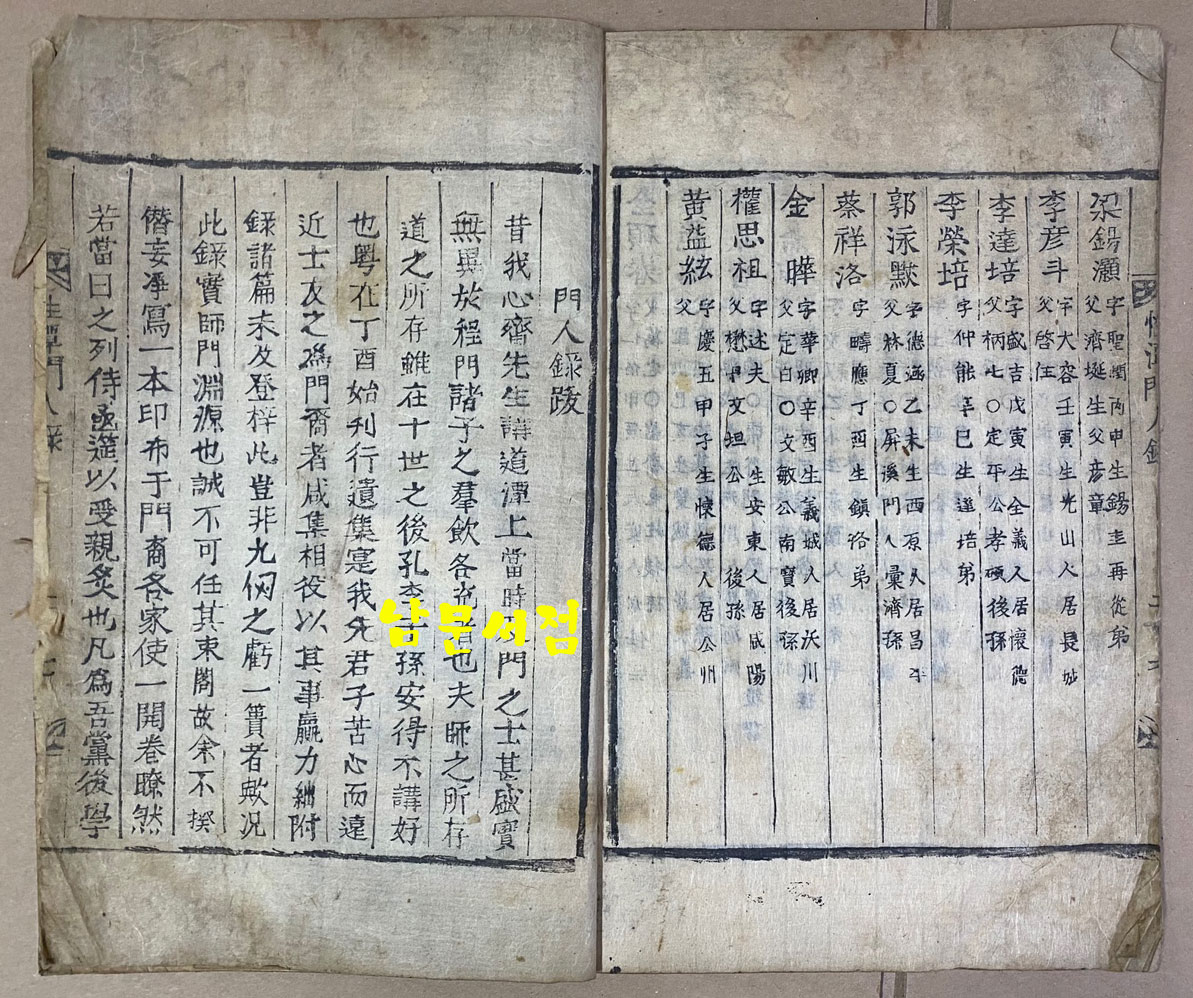 梁錫灝 字聖爀丙申生錫圭再從弟
父濟埏生父彦章
李彦斗 字大容壬寅生光山人居長城
父啓
李達培 字盛吉戊寅生全義人居懷德
父柄七〇定平公孝碩後孫
李榮培 字仲能辛巳生達培弟
郭泳默 字德 乙未生西原人居昌平
父林夏〇屛溪門人彙濟孫
蔡祥洛 字疇應丁酉生鎭 弟
金 曄 字華卿辛酉生義城人居沃川
父定白〇文敏公南寶後孫
權思祖 字述夫〇 生安東人居咸陽
父懋中文坦公 後孫
黃益絃 字慶五甲子生懷德人居公州
父
性潭門人錄
門人錄跋
昔我心齋先生講道潭上當時 門之士甚盛實
無異於程門諸子之羣飮各充 也夫師之所存
道之所存雖在十世之後孔李 孫安得不講好
也粤在丁酉始刊行遺集寔我先君子苦心而遠
近士友之爲門裔者咸集相役以其事贏力絀附
錄諸篇未及登梓此豈非九仞之虧一簣者歟况
此錄實師門淵源也誠不可任其東閣故余不揆
僭妄淨寫一本印布于門裔各家使一開卷瞭然
若當日之列侍函筵以受親炙也凡爲吾黨後學
性潭門人錄
남문서점